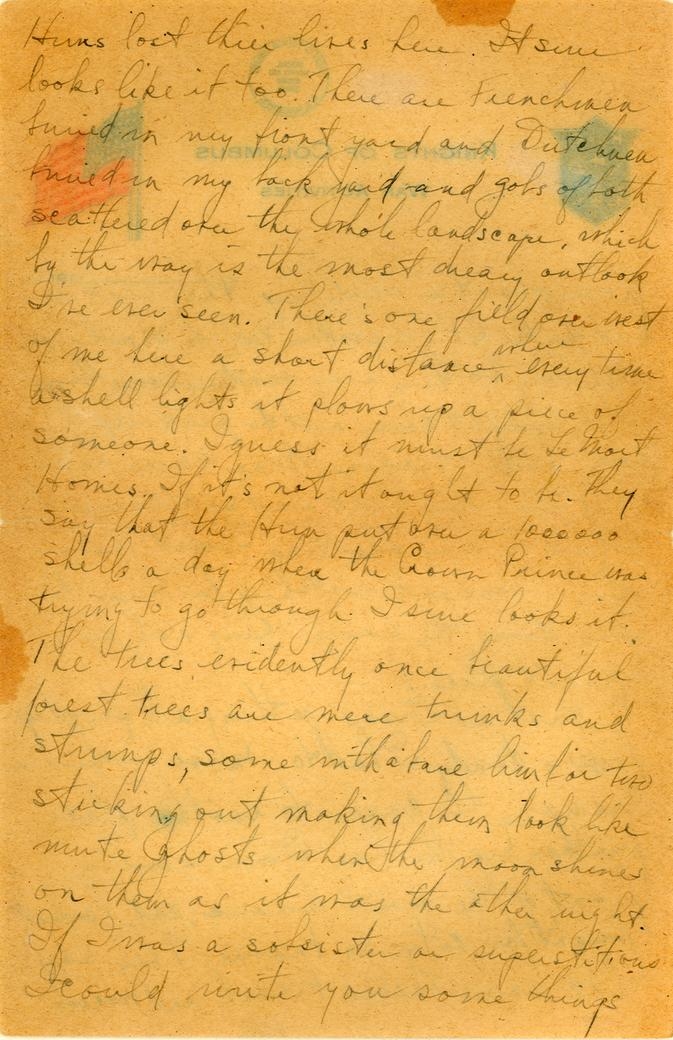 Huns lost thier lives here. It sure
looks like it too. There are Frenchmen
buried in my front yard and Dutchmen
buried in my back yard and gobs of both
scattered over the whole landscape, which
by the way is the most dreary outlook
I've ever seen. There's one field over west
of me here a short distance, where every time
a shell lights it plows up a piece of
someone. I guess it must be Le Mort
Homes. If it's not it ought to be. They
say that the Hun put over a 1000000
shells a day when the Crown Prince was
trying to go through. I sure looks it.
The trees evidently once beautiful
forest trees are mere trunks and
stumps, some with a bare limb or two
sticking out making them look like
mute ghosts when the moon shines
on them as it was the other night.
If I was a sobsister or superstitious
I could write you some things
KNIGHTS OF COLUMBUS
WAR ACTIVITIES